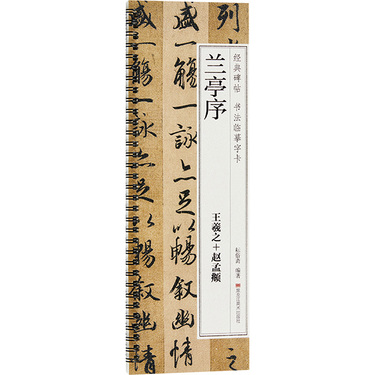 列
之
经典碑帖 书法临摹字卡
兰亭序
王羲之+赵孟頫
编著
盛一觴一詠亦足以暢叙幽情
盛一觴一詠亦足以暢叙幽情